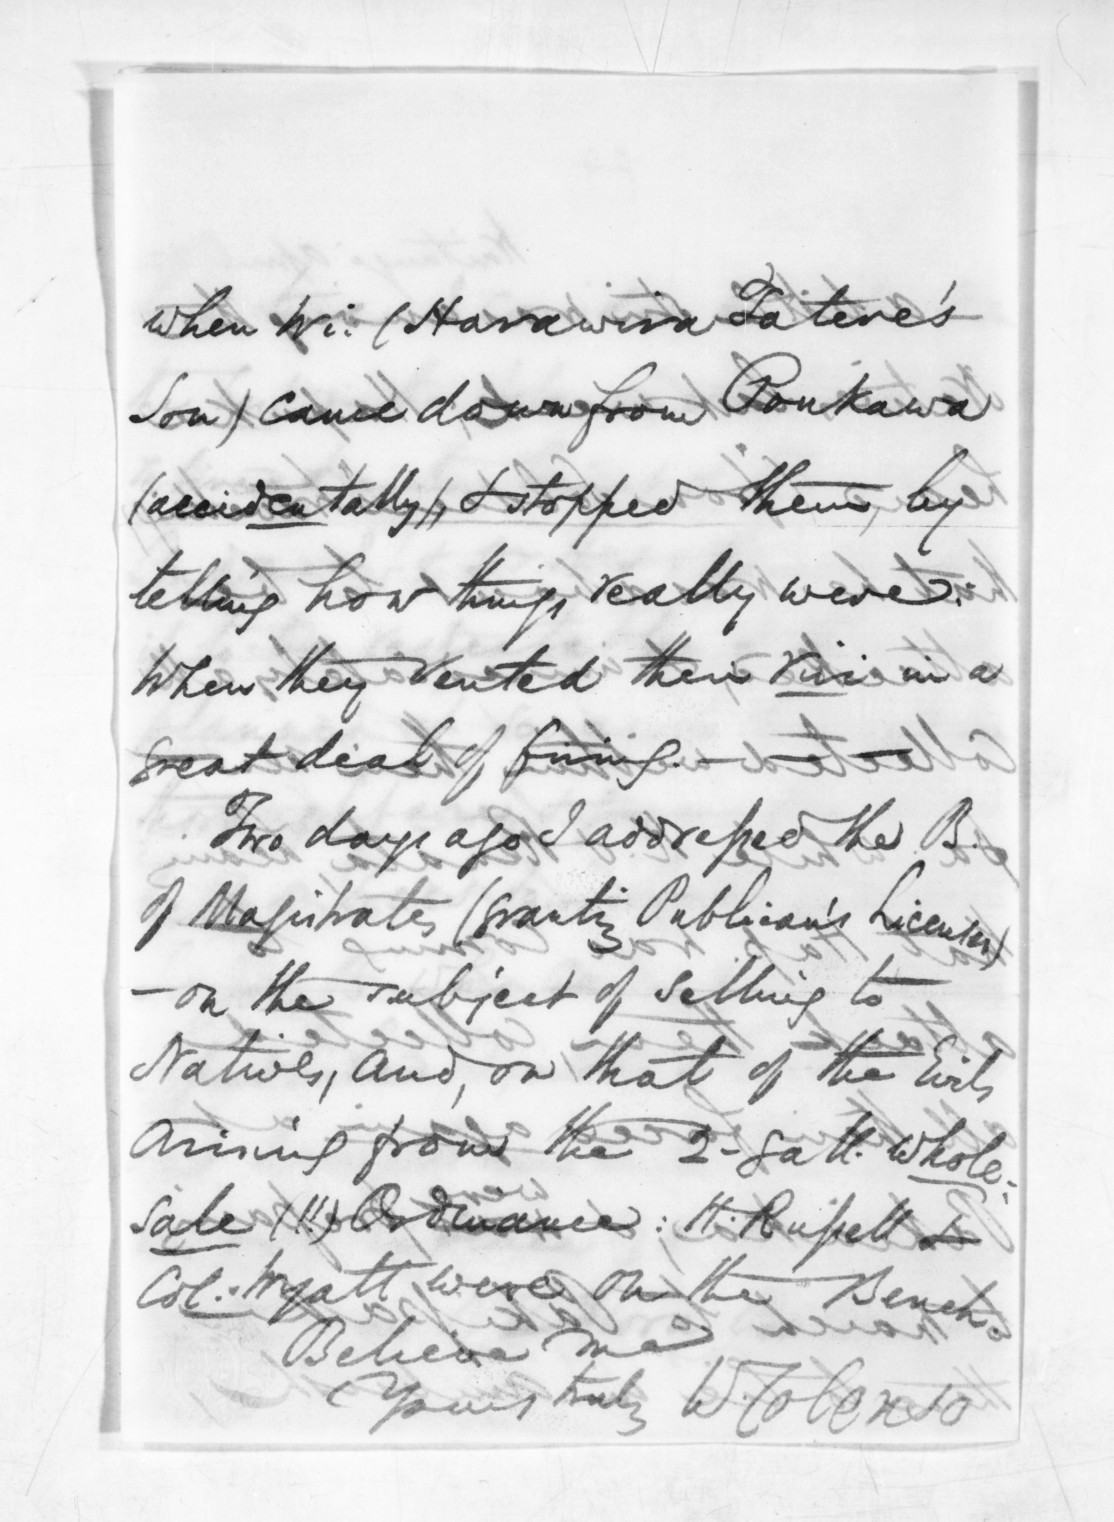 when Wi: (Harawira Tatere's
Son) came down from Poukawa
(accidentally), & stopped them, by
telling how things really were:
When they vented their riri in a
great deal of firing. — — —
Two days ago I addressed the B.
of Magistrates (grantg Publican's Licenses)
— on the subject of selling to
Natives, and, on that of the Evils
arising from the 2-gall. whole-
sale (!!) Ordinance: H. Russell &
Col. Wyatt were on the Bench.
Believe me
Yours truly W. Colenso